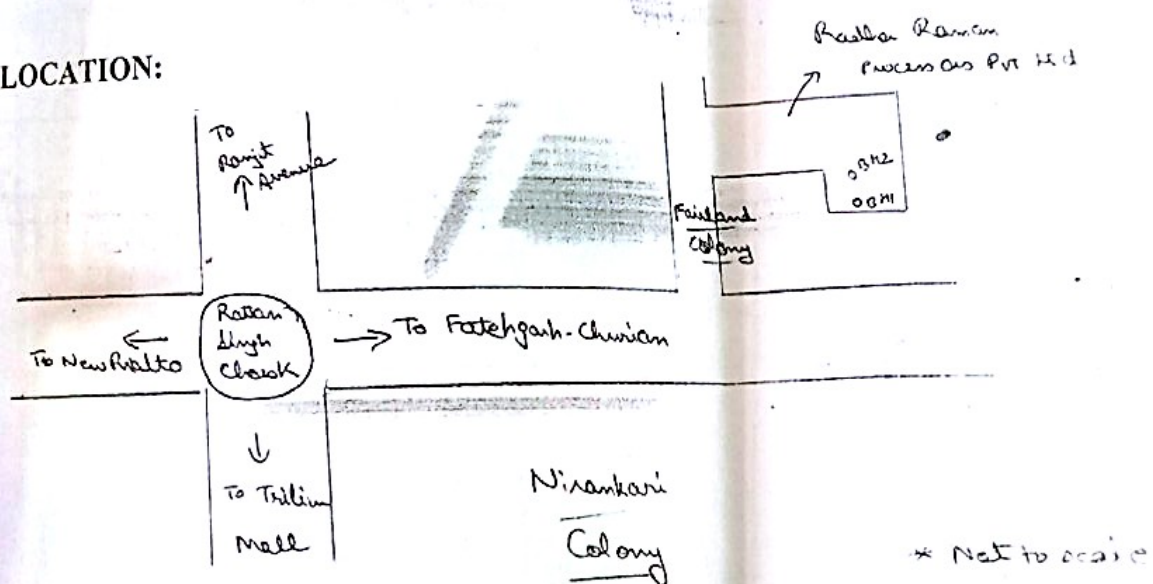 LOCATION:
Radha Raman
Processors Pvt Ltd
To
Ranjit
Avenue
BH2
BH1
Fairland
Colony
Rattan
Singh
Chowk
To New Rialto
To Fatehgarh-Churian
To Trilium
Mall
Nirankari
Colony
* Not to scale